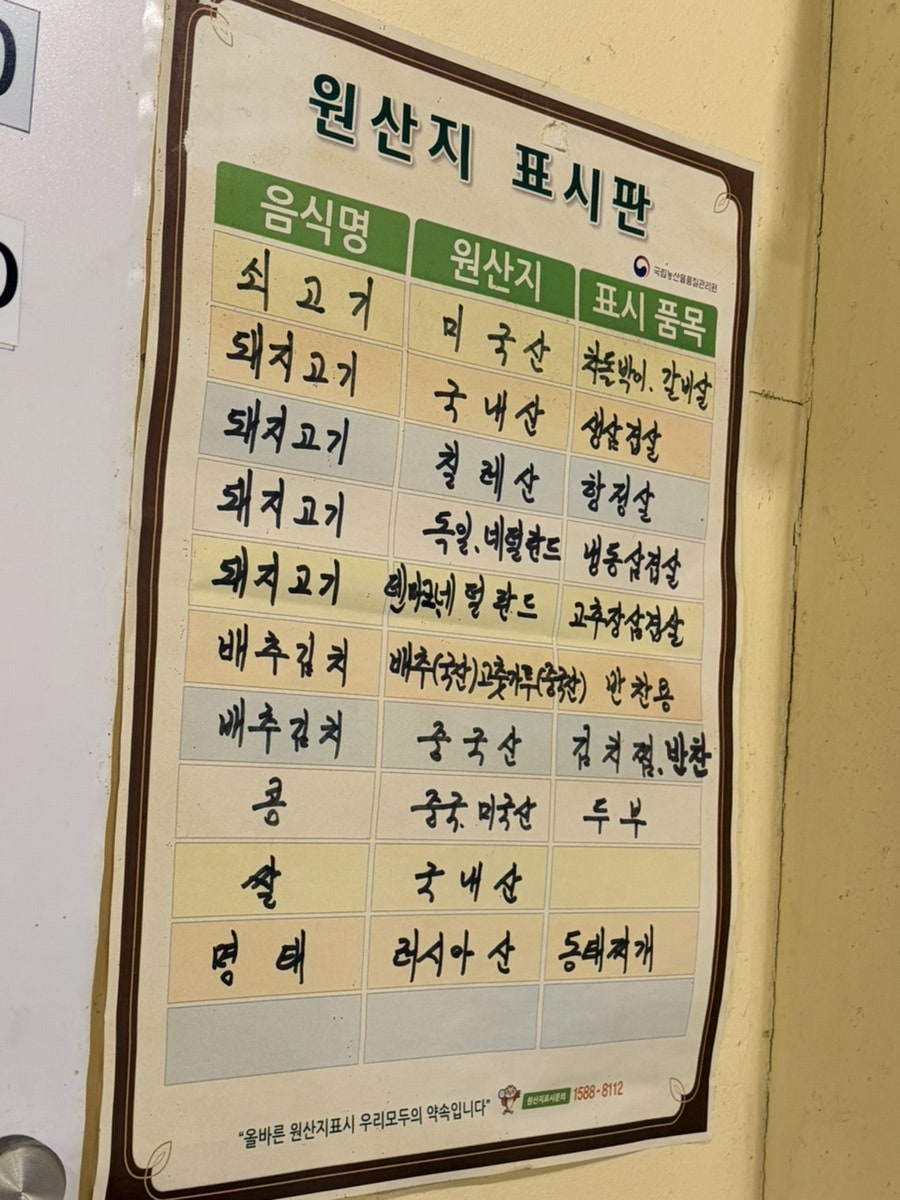 원산지 표시판
국립농산물품질관리원
음식명 원산지 표시 품목
쇠고기 미국산 차돌박이. 갈비살
돼지고기 국내산 생삼겹살
돼지고기 칠레산 항정살
돼지고기 독일, 네덜란드 냉동삼겹살
돼지고기 덴마크, 네덜란드 고추장삼겹살
배추김치 배추(국산)고춧가루(중국산) 반찬용
배추김치 중국산 김치찜, 반찬
콩 중국, 미국산 두부
쌀 국내산
명태 러시아산 동태찌개
"올바른 원산지표시 우리모두의 약속입니다" 원산지표시문의 1588-8112